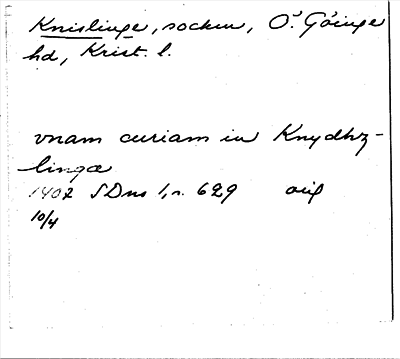 Knislinge, socken, Ö. Göinge
hd, Krist. l.
vnam curiam in Knydhz-
lingæ
1402 SDns 1, n. 629 orig
10/4